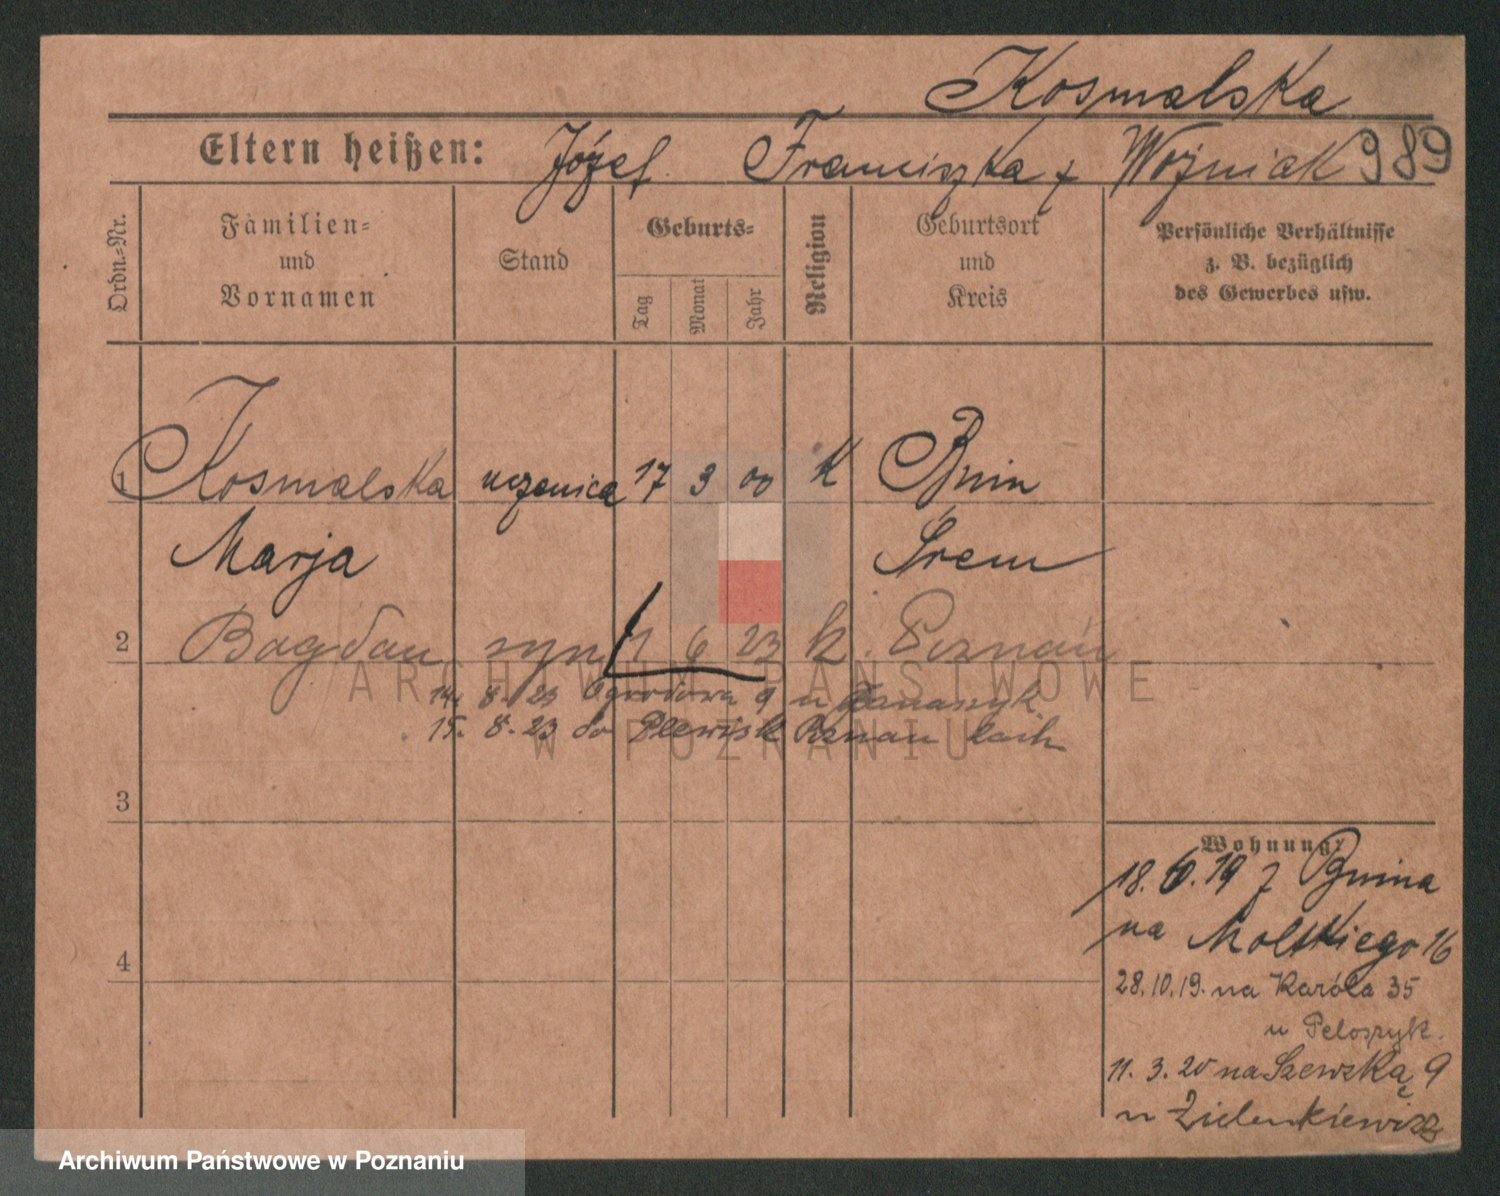 Kosmalska
Eltern heißen: Józef Franciszka x Woźniak 989
Ordn.-Nr.
Familien-
und
Vornamen
Stand
Geburts-
Tag
Monat
Jahr
Religion
Geburtsort
und
Kreis
Persönliche Verhältnisse
z. B. bezüglich
des Gewerbes usw.
1 Kosmalska uczenica 17 3 00 K Bnin
Marja Śrem
2 Bogdan syn 1 6 23 k. Poznań
14. 8. 23 Ogrodowa 9 u
15. 8. 23 do Plewisk Poznań
3
4
Wohnung:
18. 6. 19 z Bnina
na Moltkiego 16
28.10.19. na Karóla 35
u Peloszyk.
11. 3. 20 na Szewską 9
u Zielenkiewicz
ARCHIWUM PAŃSTWOWE
W POZNANIU
Archiwum Państwowe w Poznaniu